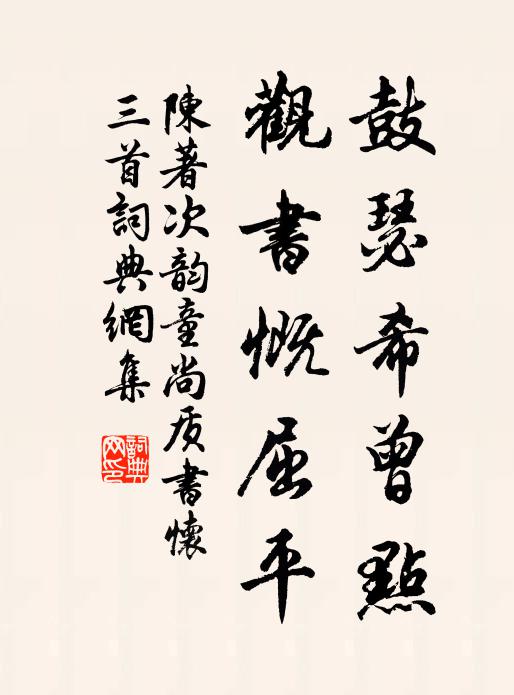 鼓瑟希曾點
觀書慨屈平
陳著次韵童尚质書懷
三首詞典網集
詞典网印